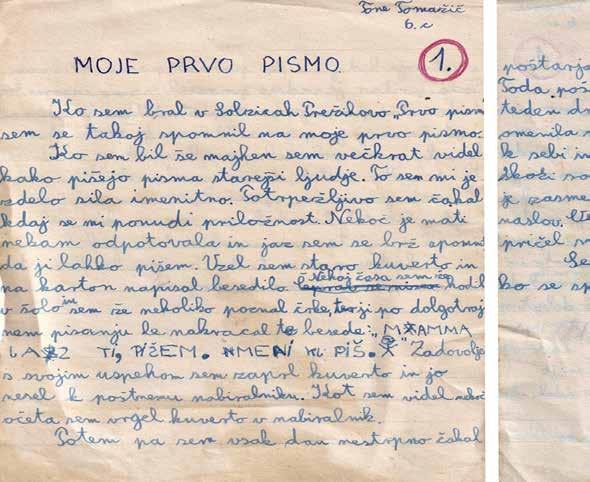 Tone Tomažič
6. c
MOJE PRVO PISMO.
1.
Ko sem bral v Solzicah Prežihovo „Prvo pismo
sem se takoj spomnil na moje prvo pismo.
Ko sem bil še majhen sem večkrat videl
kako pišejo pisma starejši ljudje. To sem mi je
zdelo sila imenitno. Potrpežljivo sem čakal
kdaj se mi ponudi priložnost. Nekoč je mati
nekam odpotovala in jaz sem se brž spomnil
da ji lahko pišem. Vzel sem staro kuverto in
na karton napisal besedilo Nekaj časa sem že hodil
v šolo in sem že nekoliko poznal črke, torej po dolgotraj
nem pisanju le nakracal te besede: „MAMMA
JAZ TI, PIŽEM. MENI PIŠ." Zadovoljen
s svojim uspehom sem zaprl kuverto in jo
nesel k poštnemu nabiralniku. Kot sem videl nekoč
očeta sem vrgel kuverto v nabiralnik.
Potem pa sem vsak dan nestrpno čakal
poštarja
Toda poš
teden dn
omenila
k sebi in
je zasme
naslov.
pričel
ko se sp